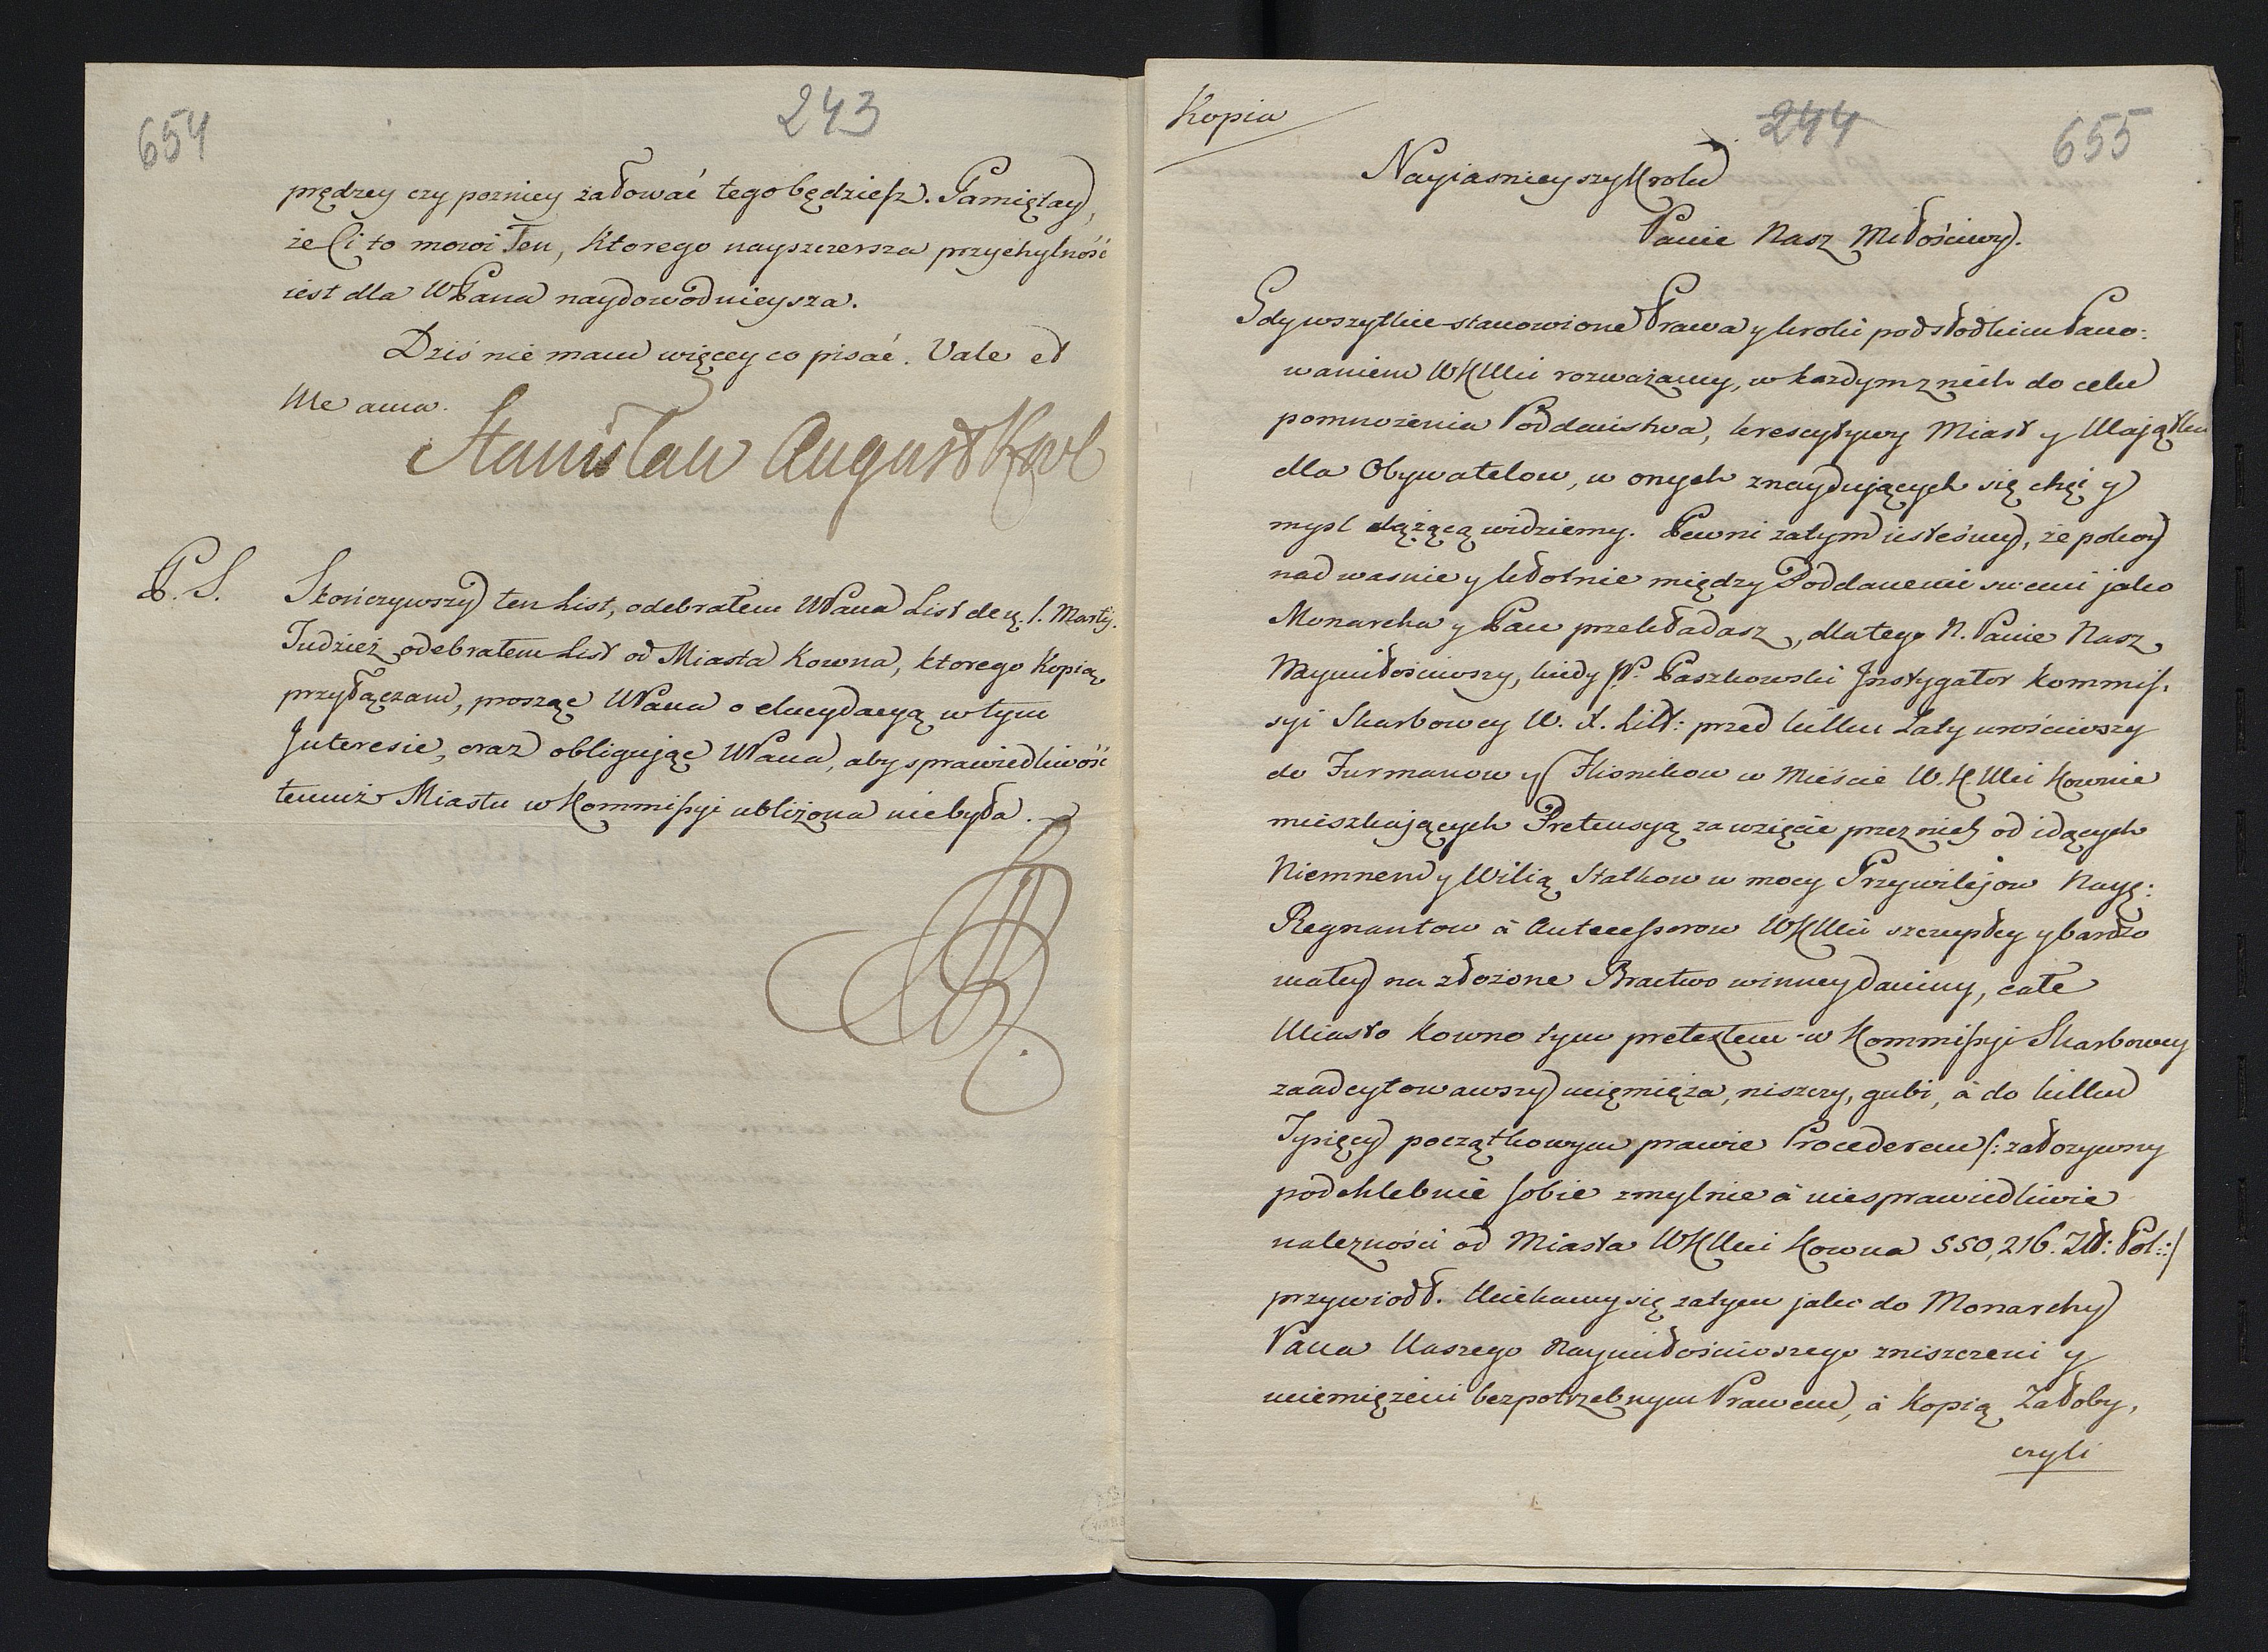 654
243
prędzey czy pozniey żałować tego będziesz. Pamiętay,
że Ci to mowi Ten, ktorego nayszczersza przychylność
iest dla WPana naydowodnieysza.
Dziś nie mam więcey co pisać. Vale et
Me ama.
Stanisław August Krol
P. S. Skończywszy ten List, odebrałem WPana List de 1. Marty.
Tudzież odebrałem List od Miasta Kowna, ktorego Kopią
przyłączam, prosząc WPana o elucydacyą w tym
Interesie, oraz obligując WPana, aby sprawiedliwość
temuż Miastu w Kommissyi ubliżona nie była.
Kopia
244
655
Nayiasnieyszy Krolu
Panie Nasz Miłościwy.
Gdy wszytkie stanowione Prawa y kroki pod słodkim Pano:
waniem WKMci rozważamy, w każdym z nich do celu
pomnożenia Poddaństwa, krescytywy Miast y Maiątku
dla Obywatelow, w onych znaydujących się chęć y
mysl dążącą widziemy. Pewni zatym iesteśmy, że pokoy
nad wasnie y kłotnie między Poddanemi swemi jako
Monarcha y Pan przekładasz, dlatego N. Panie Nasz
Naymiłościwszy, kiedy P. Paszkowski Instygator Kommis:
syi Skarbowey W. X. Litt: przed kilku Laty urościwszy
do Furmanow y Flisnikow w Mieście W. K. Mci Kownie
mieszkających Pretensyą za wzięcie przez nich od idących
Niemnem y Wilią Statkow w mocy Przywilejow Nayj:
Regnantow á Antecessorow WKMci szczupłey y bardzo
małey na złożone Bractwo winney daniny, całe
Miasto Kowno tym pretextem w Kommissyi Skarbowey
zaadcytowawszy uciemięża, niszczy, gubi, á do kilku
Tysięcy początkowym prawie Procederem /: założywszy
podchlebnie sobie zmylnie á niesprawiedliwie
należności od Miasta WKMci Kowna 550,216. Zł: Pol: :/
przywiodł. Uciekamy się zatym jako do Monarchy
Pana Naszego Naymiłościwszego zniszczeni y
uciemiężeni bezpotrzebnym Prawem, á Kopią Załoby,
czyli